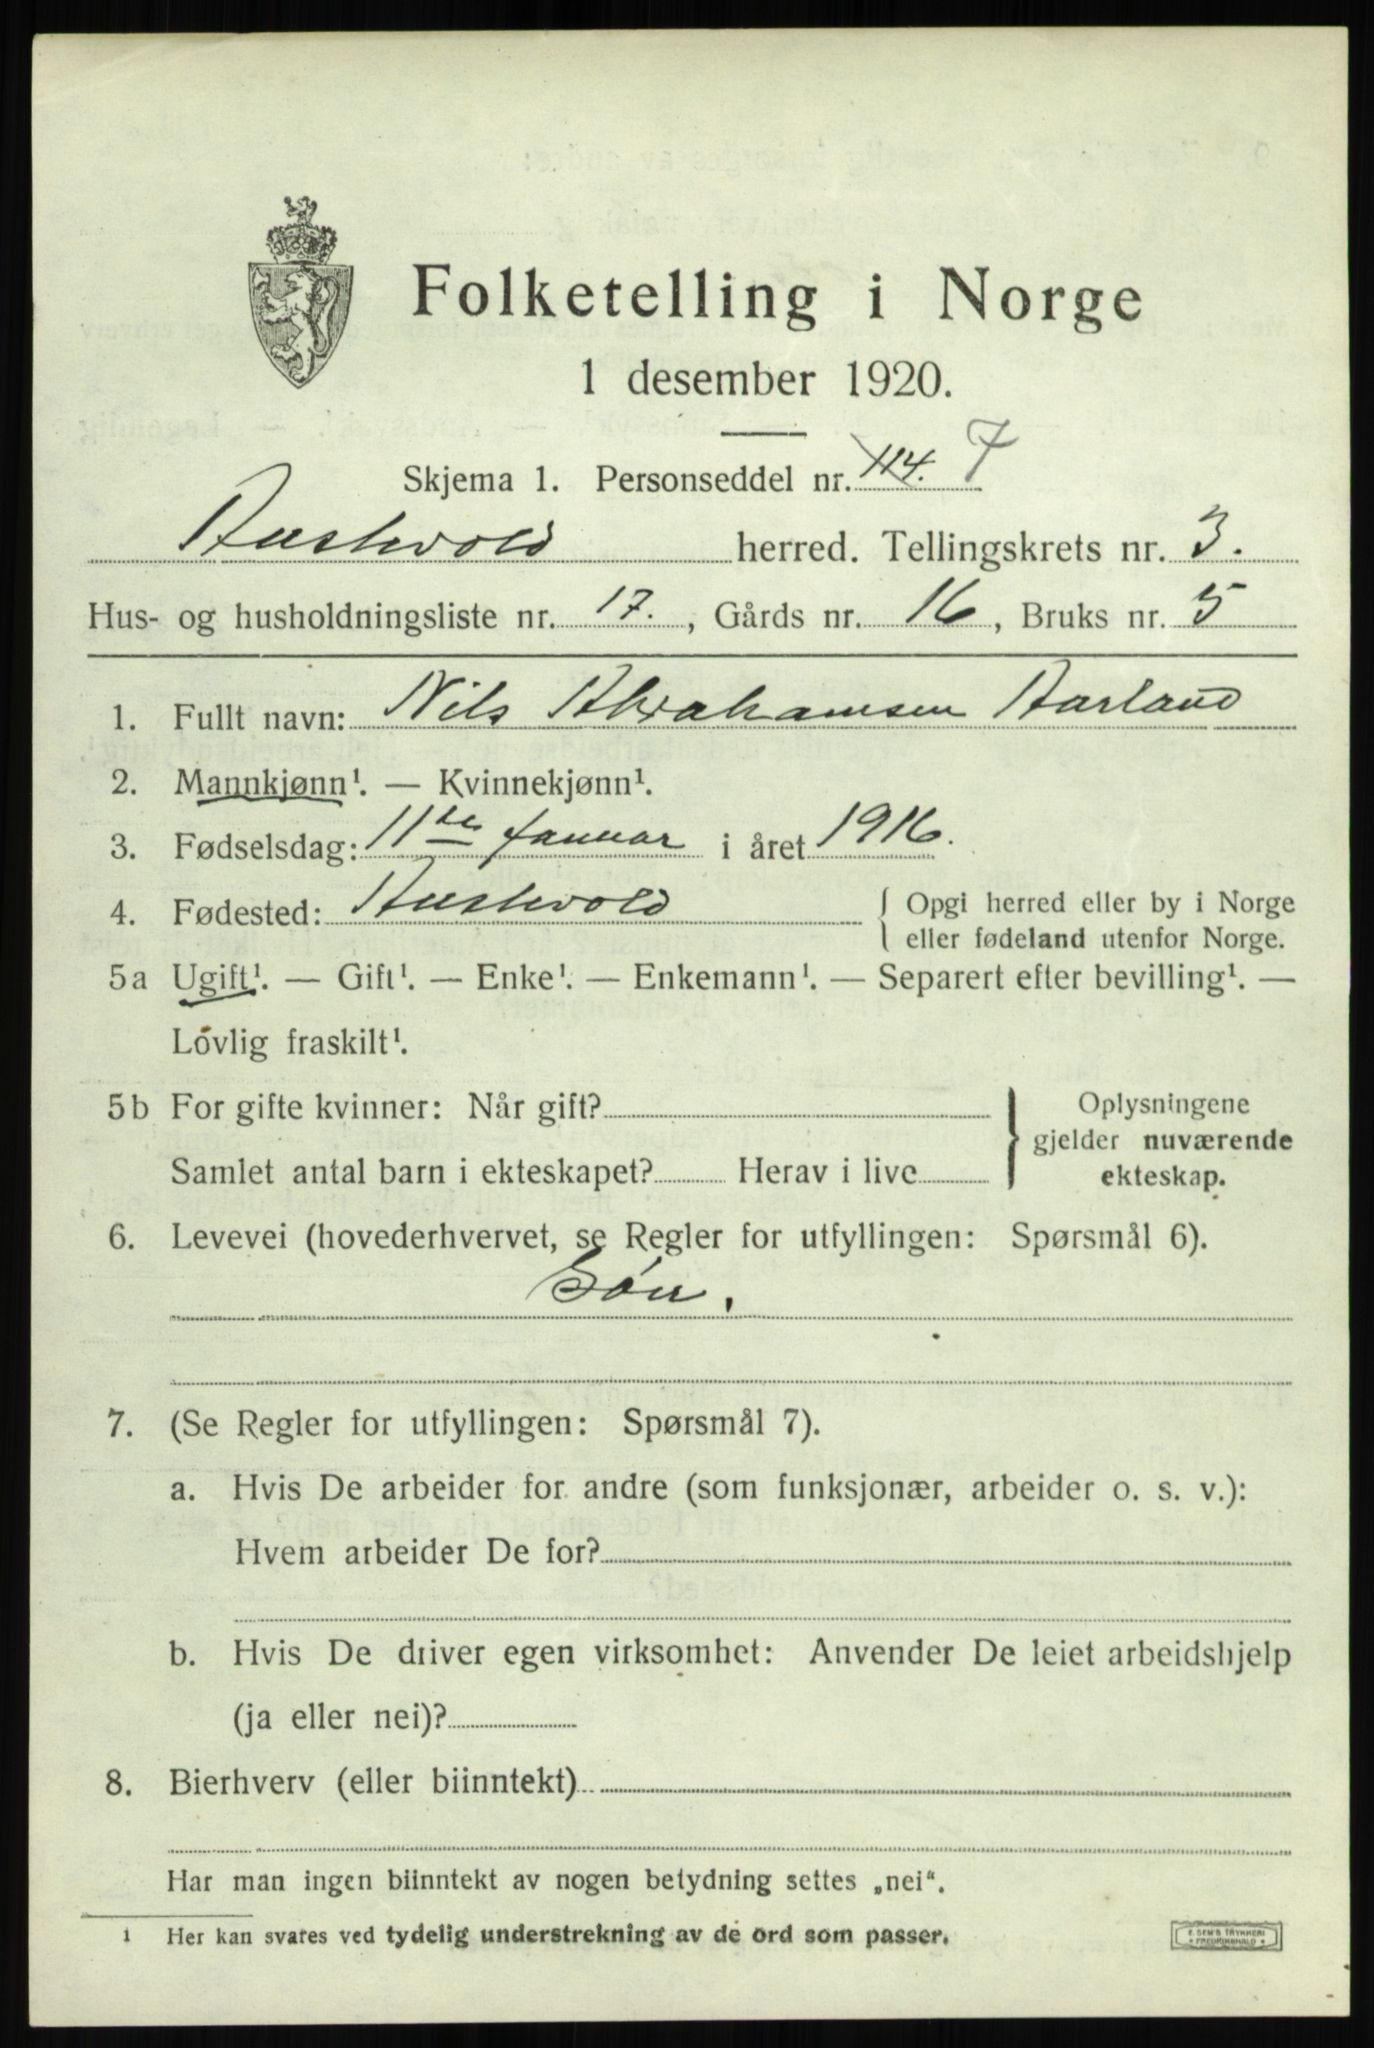 Folketelling i Norge
1 desember 1920.
Skjema 1. Personseddel nr. 114. 7
Austevold herred. Tellingskrets nr. 3.
Hus- og husholdningsliste nr. 17., Gårds nr. 16, Bruks nr. 5
1. Fullt navn: Nils Abrahamsen Aarland
2. Mannkjønn¹. — Kvinnekjønn¹.
3. Fødselsdag: 11te Januar i året 1916.
4. Fødested: Austevold { Opgi herred eller by i Norge
eller fødeland utenfor Norge.
5a Ugift¹. — Gift¹. — Enke¹. — Enkemann¹. — Separert efter bevilling¹. —
Lovlig fraskilt¹.
5b For gifte kvinner: Når gift? } Oplysningene
gjelder nuværende
Samlet antal barn i ekteskapet? Herav i live
ekteskap.
6. Levevei (hovederhvervet, se Regler for utfyllingen: Spørsmål 6).
Søn.
7. (Se Regler for utfyllingen: Spørsmål 7).
a. Hvis De arbeider for andre (som funksjonær, arbeider o. s. v.):
Hvem arbeider De for?
b. Hvis De driver egen virksomhet: Anvender De leiet arbeidshjelp
(ja eller nei)?
8. Bierhverv (eller biinntekt)
Har man ingen biinntekt av nogen betydning settes „nei“.
1 Her kan svares ved tydelig understrekning av de ord som passer.
E. SEM'S TRYKKERI
* FREDRIKSHALD *